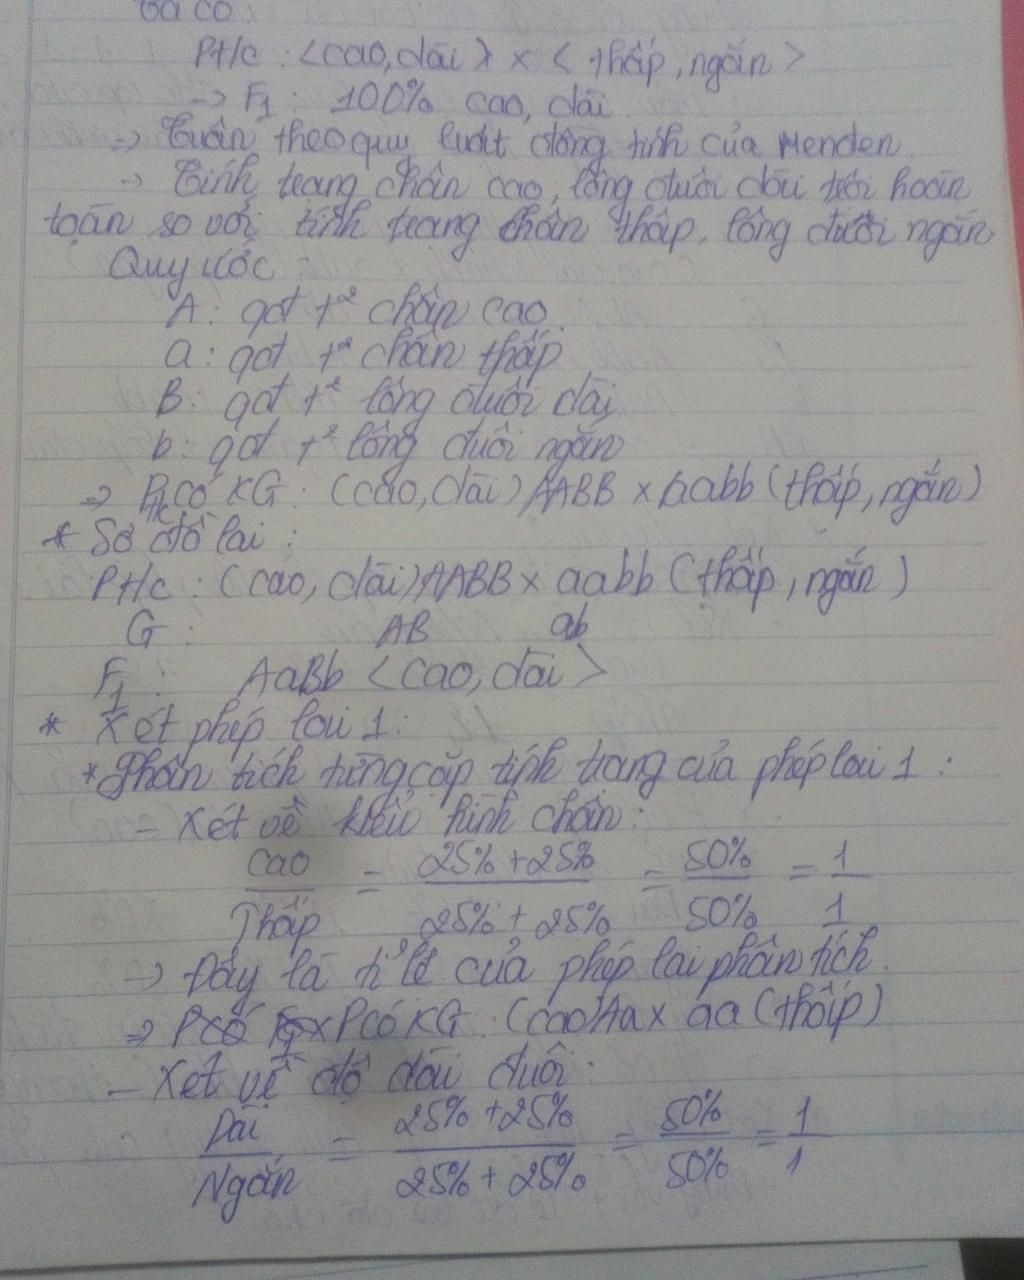 Ta có
Pt/c : <cao, dài> x < thấp, ngắn >
→ F1 : 100% cao, dài
→ Tuân theo quy luật đồng tính của Menden.
→ Tính trạng chân cao, lông đuôi dài trội hoàn
toàn so với tính trạng chân thấp, lông đuôi ngắn
Quy ước
A : gđt t² chân cao.
a : gđt t² chân thấp
B : gđt t² lông đuôi dài
b : gđt t² lông đuôi ngắn
⇒ Pt/c có KG : (cao, dài) AABB x aabb (thấp, ngắn)
* Sơ đồ lai :
Pt/c : (cao, dài) AABB x aabb (thấp, ngắn)
G : AB ab
F1 : AaBb <cao, dài>
* Xét phép lai 1 :
* Phân tích từng cặp tính trạng của phép lai 1 :
- Xét về kiểu hình chân :
Cao / Thấp = 25% + 25% / 25% + 25% = 50% / 50% = 1 / 1
→ Đây là tỉ lệ của phép lai phân tích.
⇒ P có KG : (cao) Aa x aa (thấp)
- Xét về độ dài đuôi :
Dài / Ngắn = 25% + 25% / 25% + 25% = 50% / 50% = 1 / 1